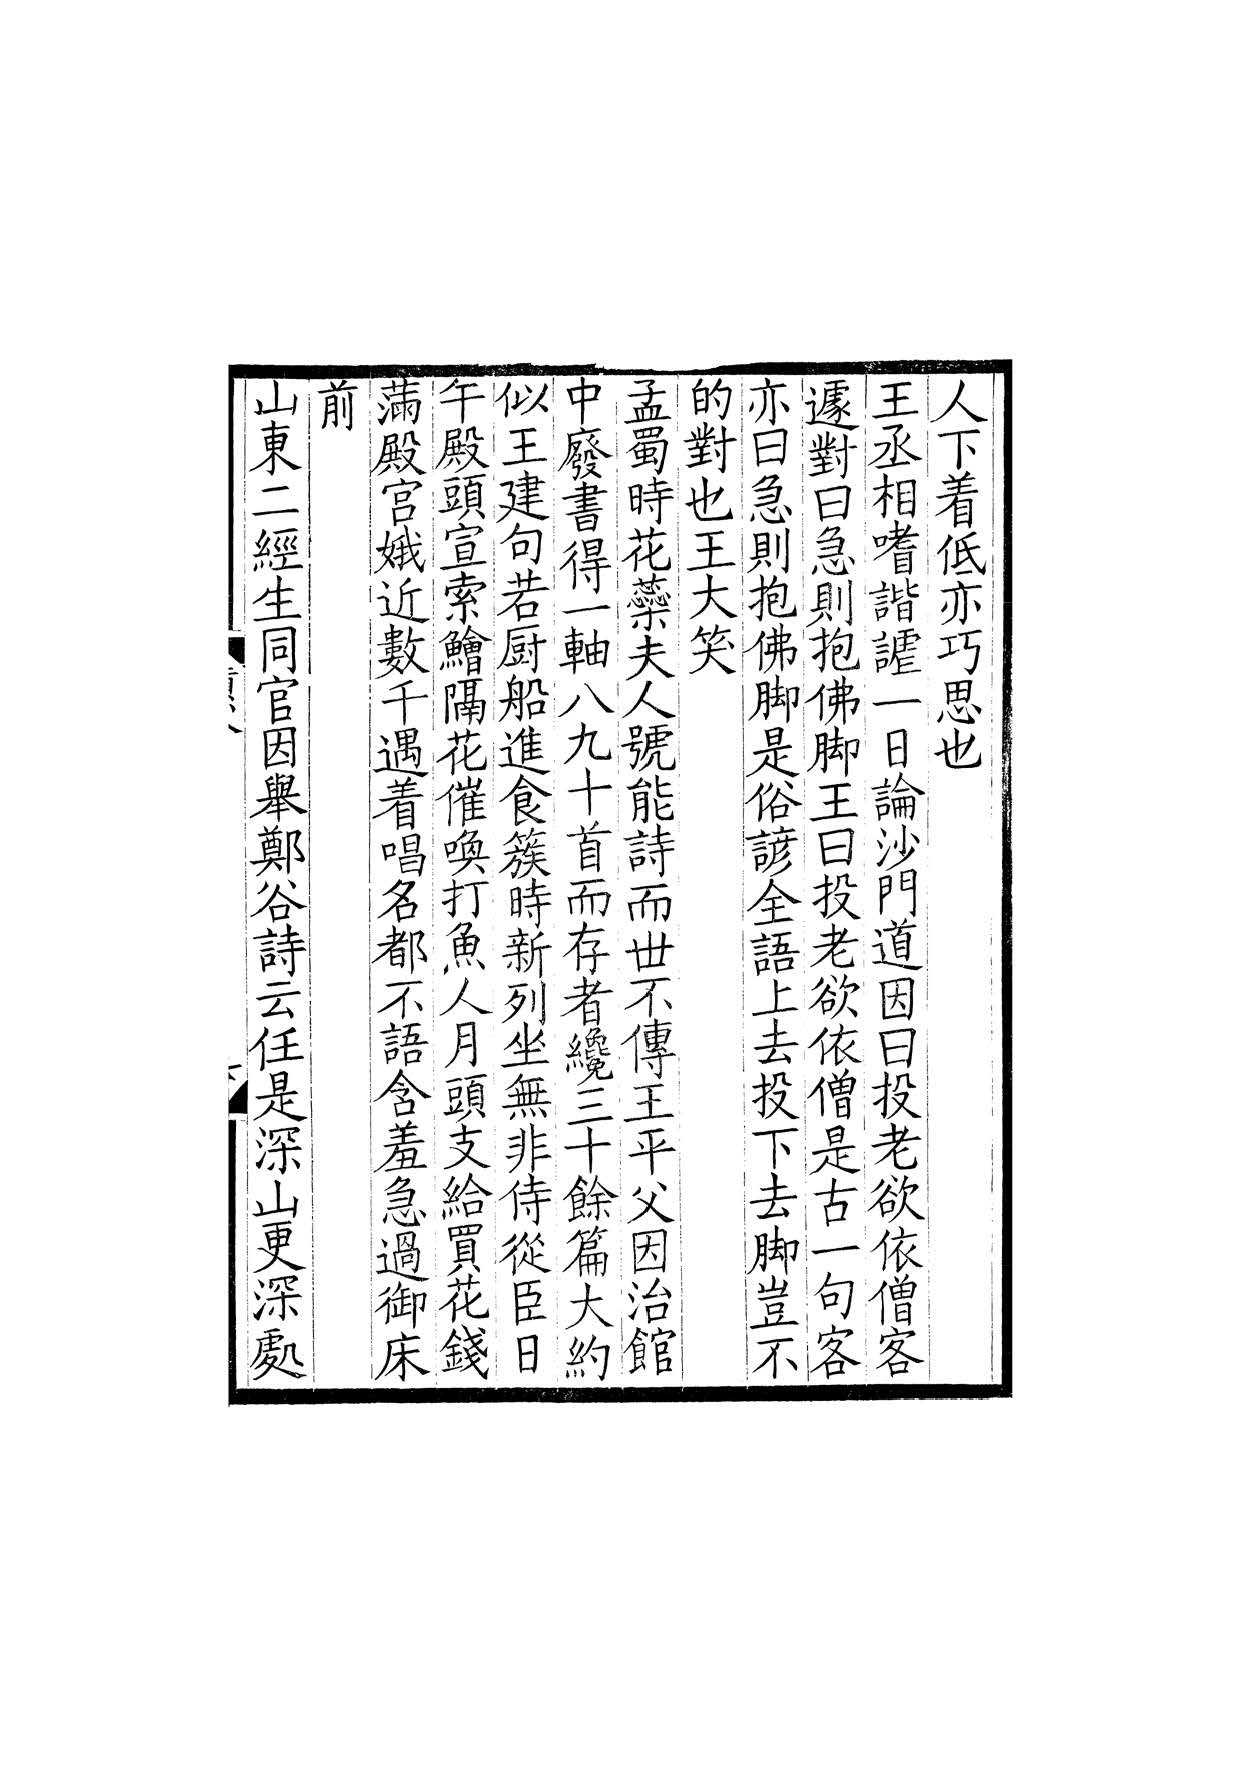 人下着低亦巧思也
王丞相嗜諧謔一日論沙門道因曰投老欲依僧客
遽對曰急則抱佛脚王曰投老欲依僧是古一句客
亦曰急則抱佛脚是俗諺全語上去投下去脚豈不
的對也王大笑
孟蜀時花蘂夫人號能詩而世不傳王平父因治館
中廢書得一軸八九十首而存者纔三十餘篇大約
似王建句若厨船進食簇時新列坐無非侍從臣日
午殿頭宣索鱠隔花催喚打魚人月頭支給買花錢
滿殿宫娥近數千遇着唱名都不語含羞急過御床
前
山東二經生同官因舉鄭谷詩云任是深山更深處